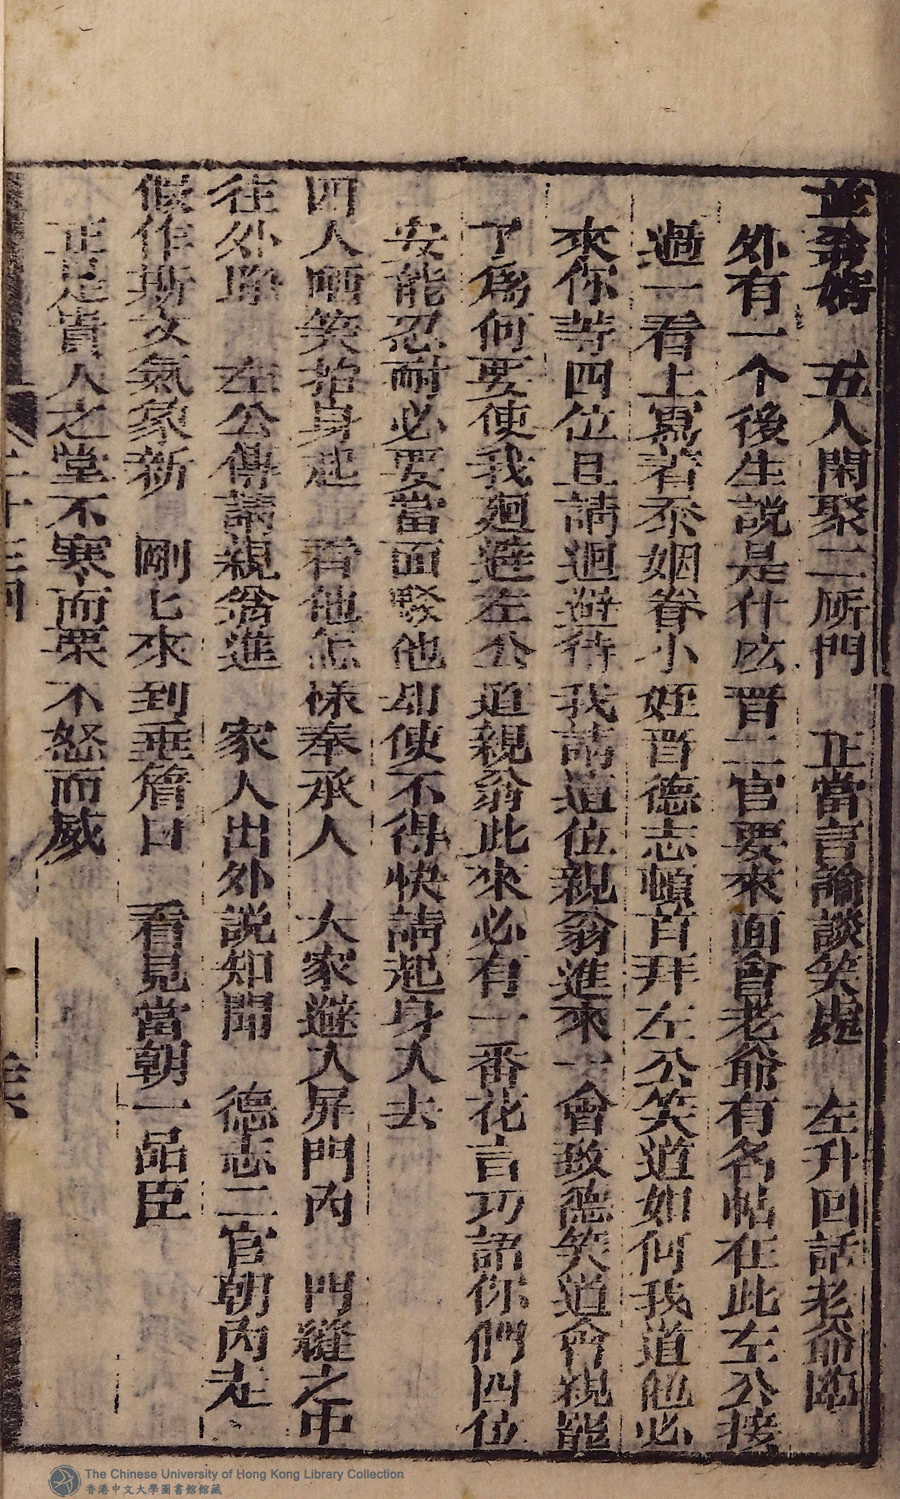 並翁婿　五人閑聚二所門　正當言論談笑處　左升回話老爺臨
外有一个後生說是什庅晋二官要來面會老爺有名帖在此左公接
過一看上寫着忝姻眷小姪晋德志頓首拜左公笑道如何我道他必
來你等四位且請迴避待我請這位親翁進來一會啟德笑道會親罷
了爲何要使我迴避左公道親翁此來必有一番花言巧語你們四位
安能忍耐必要當面駁他却使不得快請起身入去
四人哂笑抬身起　看他怎樣奉承人　大家避入屏門內　門縫之中
往外睁　左公傳請親翁進　家人出外説知聞　德志二官朝內走
假作斯文氣象新　剛七來到垂簷口　看見當朝一品臣
正是貴人之堂不寒而栗不怒而威
The Chinese University of Hong Kong Library Collection
香港中文大學圖書館館藏